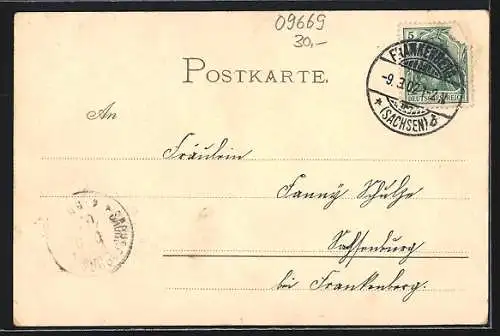 09669
30,-
5
DEUTSCHES REICH
FRANKENBERG
-9.3.02.
* (SACHSEN) *
POSTKARTE.
An
Fräulein
Fanny Schulze
Sachsenburg
bei Frankenberg.